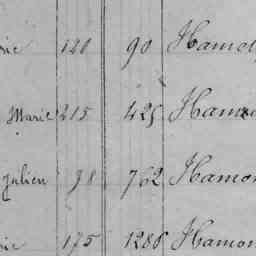 rie 120 90 Hamel
Marie 215 425 Hamo
Julien 98 762 Hamon
rie 175 1286 Hamon